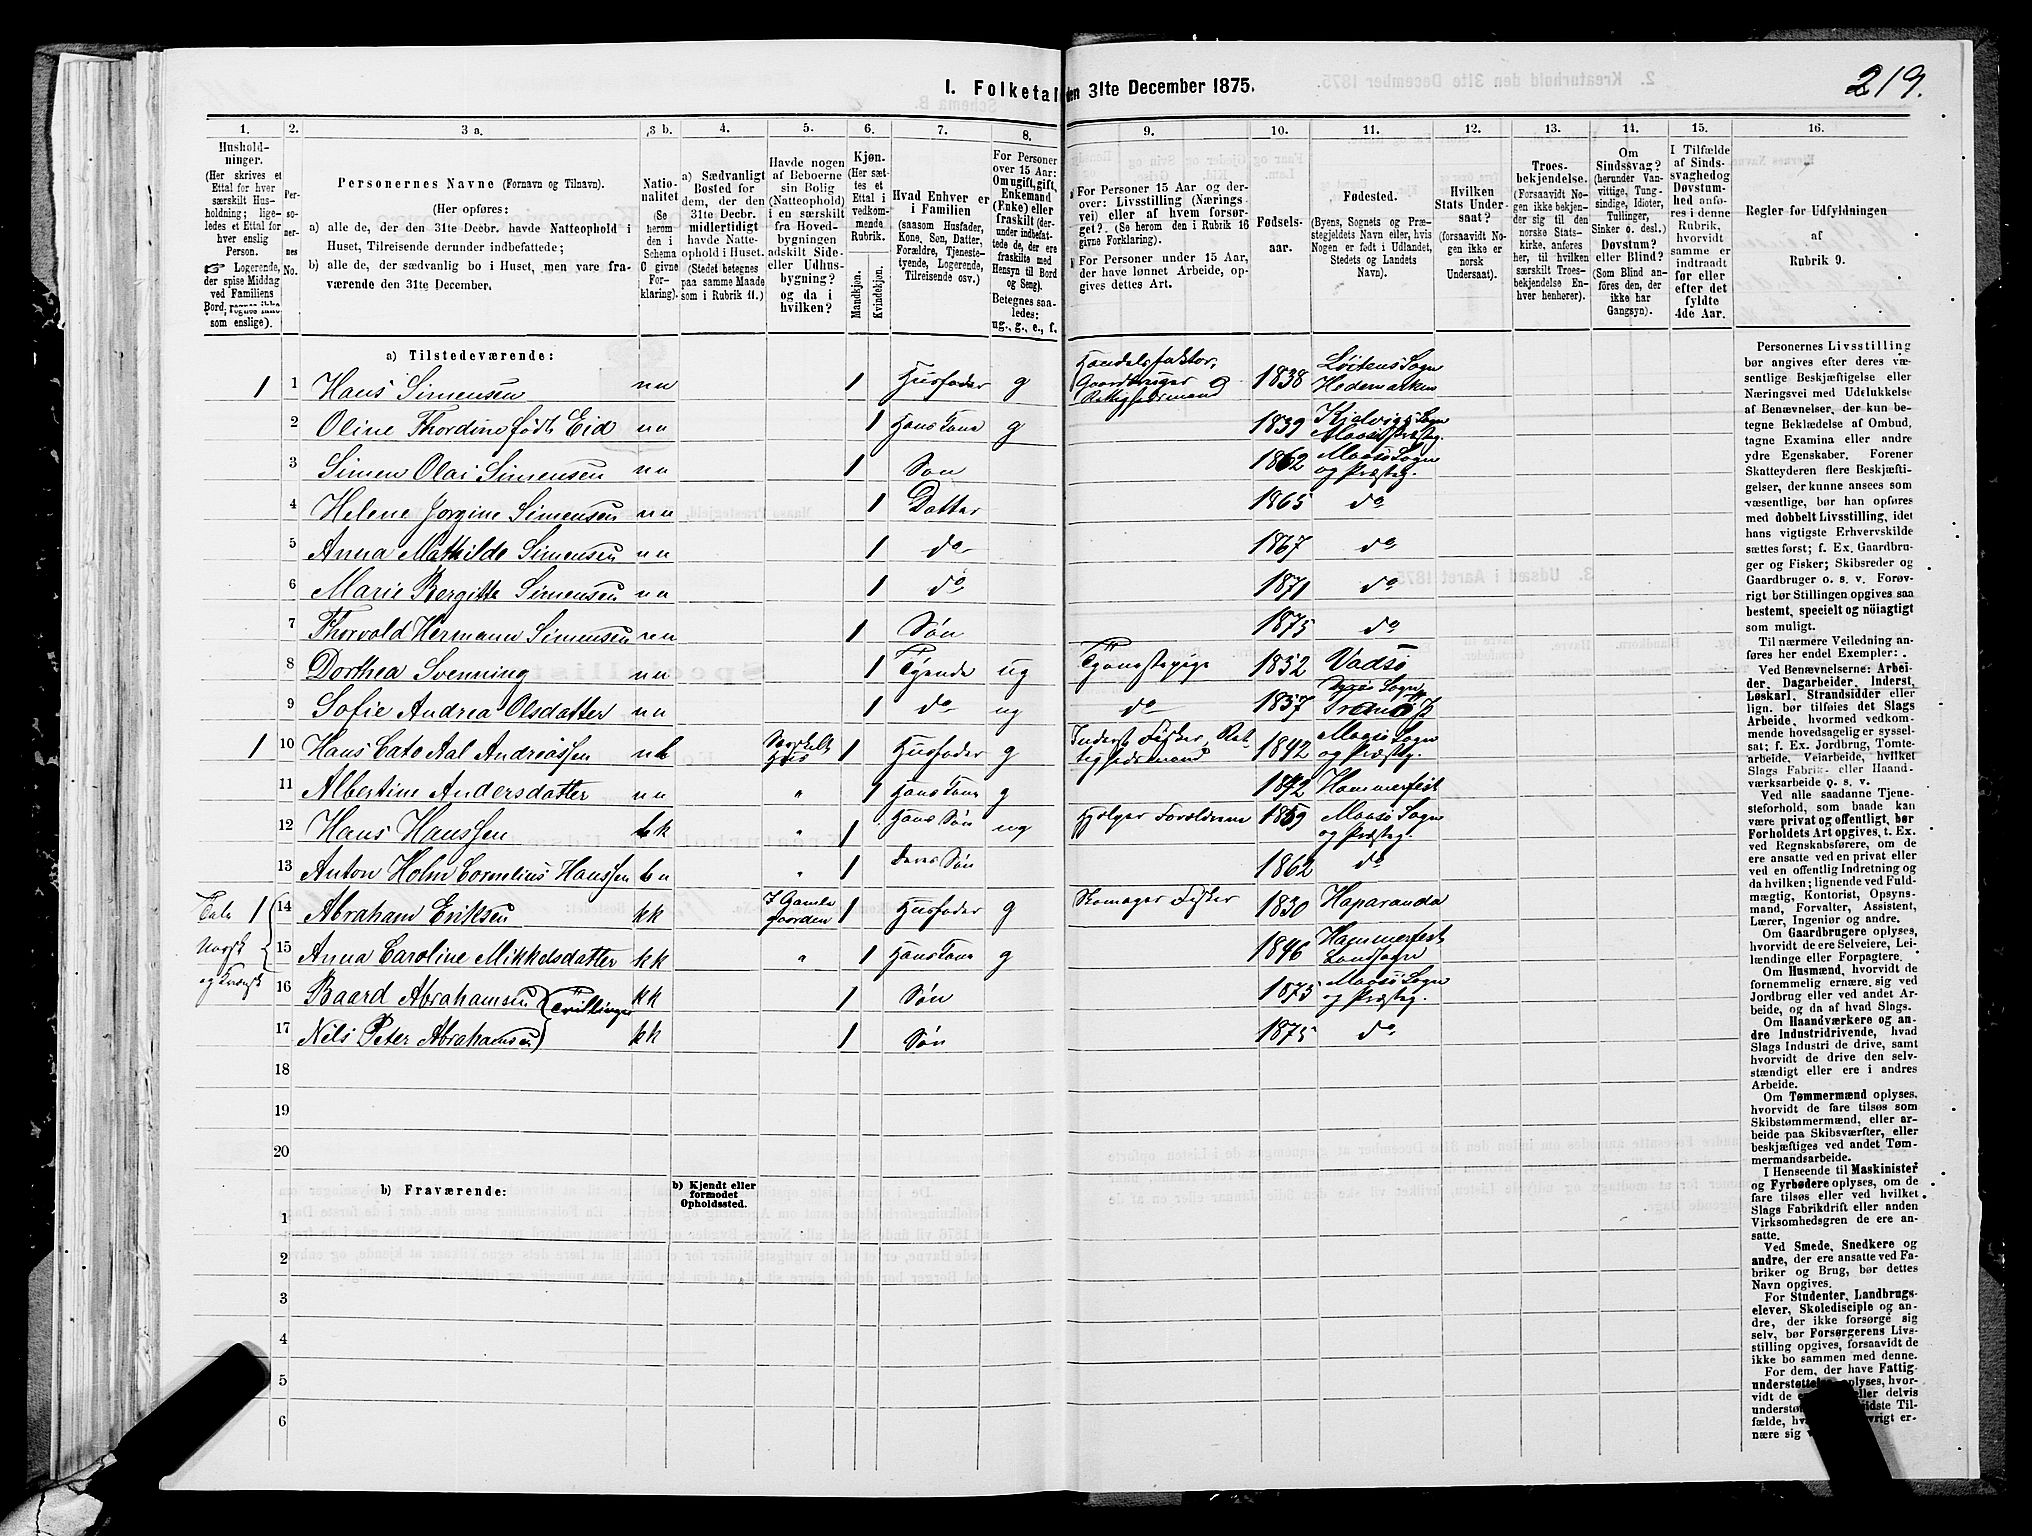 219.
I. Folketal den 31te December 1875.
1. 2. 3 a. 3 b. 4. 5. 6. 7. 8. 9. 10. 11. 12. 13. 14. 15. 16.
Hushold-
ninger.
(Her skrives et
Ettal for hver
særskilt Hus-
holdning; lige-
ledes et Ettal for
hver enslig
Person.
☞ Logerende,
der spise Middag
ved Familiens
Bord, regnes ikke
som enslige).
Per-
so-
ner-
nes
No.
Personernes Navne (Fornavn og Tilnavn).
(Her opføres:
a) alle de, der den 31te Decbr. havde Natteophold i
Huset, Tilreisende derunder indbefattede;
b) alle de, der sædvanlig bo i Huset, men vare fra-
værende den 31te December.
Natio-
nalitet
(Se
herom
den i
Schema
C givne
For-
klaring).
a) Sædvanligt
Bosted for
dem, der den
31te Decbr.
midlertidigt
havde Natte-
ophold i Huset.
(Stedet betegnes
paa samme Maade
som i Rubrik 11.)
Havde nogen
af Beboerne
sin Bolig
(Natteophold)
i en særskilt
fra Hoved-
bygningen
adskilt Side-
eller Udhus-
bygning?
og da i
hvilken?
Kjøn.
(Her sæt-
tes et
Ettal i
vedkom-
mende
Rubrik.
Mandkjøn.
Kvindekjøn.
Hvad Enhver er
i Familien
(saasom Husfader,
Kone, Søn, Datter,
Forældre, Tjeneste-
tyende, Logerende,
Tilreisende osv.)
For Personer
over 15 Aar:
Om ugift, gift,
Enkemand
(Enke) eller
fraskilt (der-
under indbefat-
tede de, der ere
fraskilte med
Hensyn til Bord
og Seng).
Betegnes saa-
ledes:
ug., g., e., f.
For Personer 15 Aar og der-
over: Livsstilling (Nærings-
vei) eller af hvem forsør-
get?. (Se herom den i Rubrik 16
givne Forklaring).
For Personer under 15 Aar,
der have lønnet Arbeide, op-
gives dettes Art.
Fødsels-
aar.
Fødested.
(Byens, Sognets og Præ-
stegjeldets Navn eller, hvis
Nogen er født i Udlandet,
Stedets og Landets
Navn).
Hvilken
Stats Under-
saat?
(forsaavidt No-
gen ikke er
norsk
Undersaat).
Troes-
bekjendelse.
(Forsaavidt No-
gen ikke bekjen-
der sig til den
norske Stats-
kirke, anføres
her, til hvilken
særskilt Troes-
bekjendelse En-
hver henhører).
Om
Sindssvag?
(herunder Van-
vittige, Tung-
sindige, Idioter,
Tullinger,
Sinker o. desl.)
Døvstum?
eller Blind?
(Som Blind an-
føres den, der
ikke har
Gangsyn).
I Tilfælde
af Sinds-
svaghed og
Døvstum-
hed anfø-
res i denne
Rubrik,
hvorvidt
samme er
indtraadt
før eller
efter det
fyldte
4de Aar.
Regler for Udfyldningen
af
Rubrik 9.
a) Tilstedeværende:
1 1 Hans Simensen nn 1 Husfader g Handelsfaktor, Gaardbruger og Rettighedsmand 1838 Løitens Sogn Hedemarken
2 Oline Thordine født Eid nn 1 Hans Kone g 1839 Kjelvigs Sogn Maasø Præsteg.
3 Simen Olai Simensen nn 1 Søn 1862 Maasø Sogn og Præsteg.
4 Helene Jorgine Simensen nn 1 Datter 1865 do
5 Anna Mathilde Simensen nn 1 do 1867 do
6 Marie Bergitte Simensen nn 1 do 1871 do
7 Thorvald Hermann Simensen nn 1 Søn 1875 do
8 Dorthea Svenning nn 1 Tjende ug Tjenestepige 1852 Vadsø
9 Sofie Andrea Olsdatter nn 1 do ug do 1857 Sogn Tranø
1 10 Hans Cato Aal Andreassen Særskilt Hus 1 Husfader g Inderst Fisker, Rettighedsmand 1842 Maasø Sogn og Præsteg.
11 Albertine Andersdatter nn " 1 Hans Kone g 1842 Hammerfest
12 Hans Hanssen " 1 Hans Søn ug Hjælper Forældrene 1859 Maasø Sogn og Præsteg.
13 Anton Holm Cornelius Hanssen " 1 Deres Søn 1862 do
Tale Norsk og Kvænsk
1 14 Abraham Eriksen kk I Gamle Gaarden 1 Husfader g Skomager Fisker 1830 Haparanda
15 Anna Caroline Mikkelsdatter kk " 1 Hans Kone g 1846 Hammerfest Landsogn
16 Baard Abrahamsen } Tvillinger kk 1 Søn 1875 Maasø Sogn og Præsteg.
17 Nils Peter Abrahamsen kk 1 Søn 1875 do
18
19
20
b) Fraværende:
b) Kjendt eller
formodet
Opholdssted.
1
2
3
4
5
6
Personernes Livsstilling
bør angives efter deres væ-
sentlige Beskjæftigelse eller
Næringsvei med Udelukkelse
af Benævnelser, der kun be-
tegne Beklædelse af Ombud,
tagne Examina eller andre
ydre Egenskaber. Forener
Skatteyderen flere Beskjæfti-
gelser, der kunne ansees som
væsentlige, bør han opføres
med dobbelt Livsstilling, idet
hans vigtigste Erhvervskilde
sættes først; f. Ex. Gaardbru-
ger og Fisker; Skibsreder og
Gaardbruger o. s. v. Forøv-
rigt bør Stillingen opgives saa
bestemt, specielt og nöiagtigt
som muligt.
Til nærmere Veiledning an-
føres her endel Exempler:
Ved Benævnelserne: Arbei-
der, Dagarbeider, Inderst,
Løskarl, Strandsidder eller
lign. bør tilføies det Slags
Arbeide, hvormed vedkom-
mende hovedsagelig er syssel-
sat; f. Ex. Jordbrug, Tomte-
arbeide, Veiarbeide, hvilket
Slags Fabrik- eller Haand-
værksarbeide o. s. v.
Ved alle saadanne Tjene-
steforhold, som baade kan
være privat og offentligt, bør
Forholdets Art opgives, t. Ex.
ved Regnskabsførere, om de
ere ansatte ved en privat eller
ved en offentlig Indretning og
da hvilken; lignende ved Fuld-
mægtig, Kontorist, Opsyns-
mand, Forvalter, Assistent,
Lærer, Ingeniør og andre.
Om Gaardbrugere oplyses,
hvorvidt de ere Selveiere, Lei-
lændinge eller Forpagtere.
Om Husmænd, hvorvidt de
fornemmelig ernære sig ved
Jordbrug eller ved andet Ar-
beide, og da af hvad Slags.
Om Haandværkere og an-
dre Industridrivende, hvad
Slags Industri de drive, samt
hvorvidt de drive den selv-
stændigt eller ere i andres
Arbeide.
Om Tømmermænd oplyses,
hvorvidt de fare tilsøs som
Skibstømmermænd, eller ar-
beide paa Skibsværfter, eller
beskjæftiges ved andet Tøm-
mermandsarbeide.
I Henseende til Maskinister
og Fyrbødere oplyses, om de
fare tilsøs eller ved hvilket
Slags Fabrikdrift eller anden
Virksomhedsgren de ere an-
satte.
Ved Smede, Snedkere og
andre, der ere ansatte ved Fa-
briker og Brug, bør dettes
Navn opgives.
For Studenter, Landbrugs-
elever, Skoledisciple og an-
dre, der ikke forsørge sig
selv, bør Forsørgerens Livs-
stilling opgives, forsaavidt de
ikke bo sammen med denne.
For dem, der have Fattig-